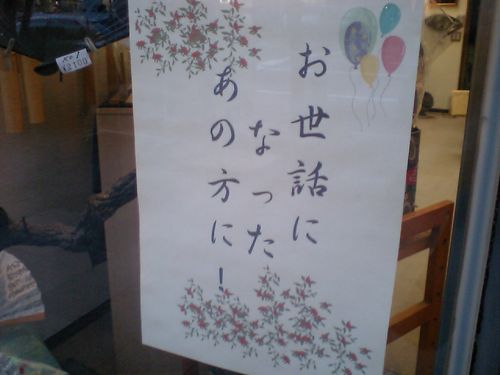 お世話に
なった
あの方に!